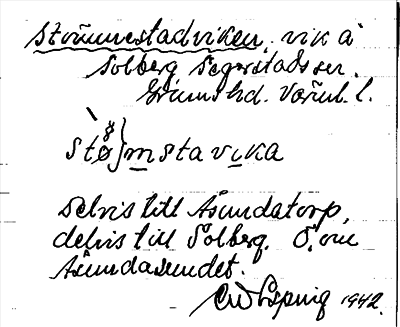 Stömnestadviken, vik å
Solberg Segerstads sn.
Grums hd. Värml. l.
stø}mstavika
delvis till Åsundatorp,
delvis till Solberg. Ö. om
Åsundasundet.
1942.